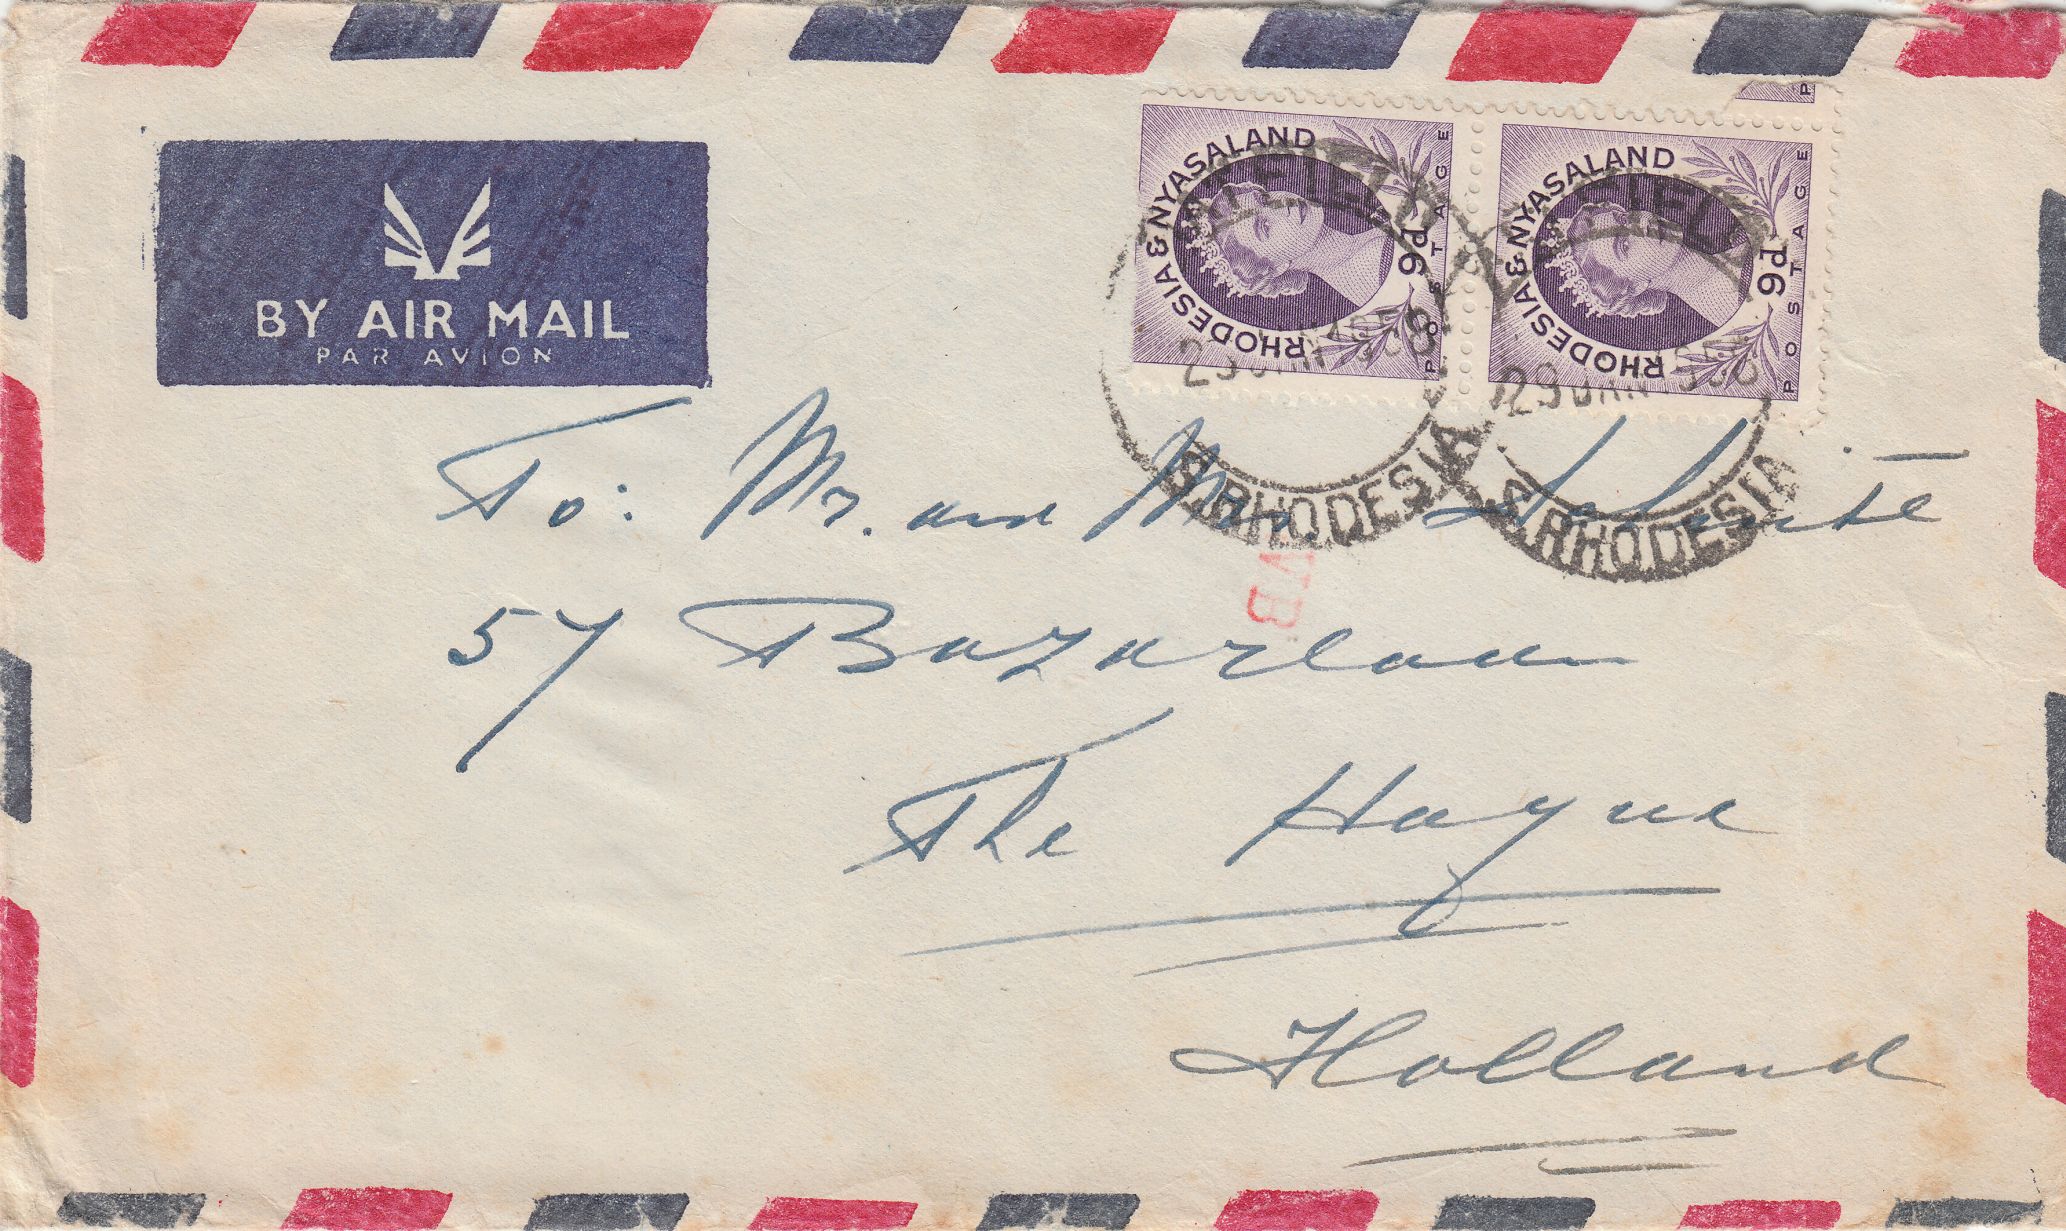 BY AIR MAIL
PAR AVION
RHODESIA & NYASALAND
9d
POSTAGE
RHODESIA & NYASALAND
9d
POSTAGE
P
29 JAN 1958
S. RHODESIA
29 JAN 1958
S. RHODESIA
To: Mr. and Mrs.
57 Bazarlaan
The Hague
Holland